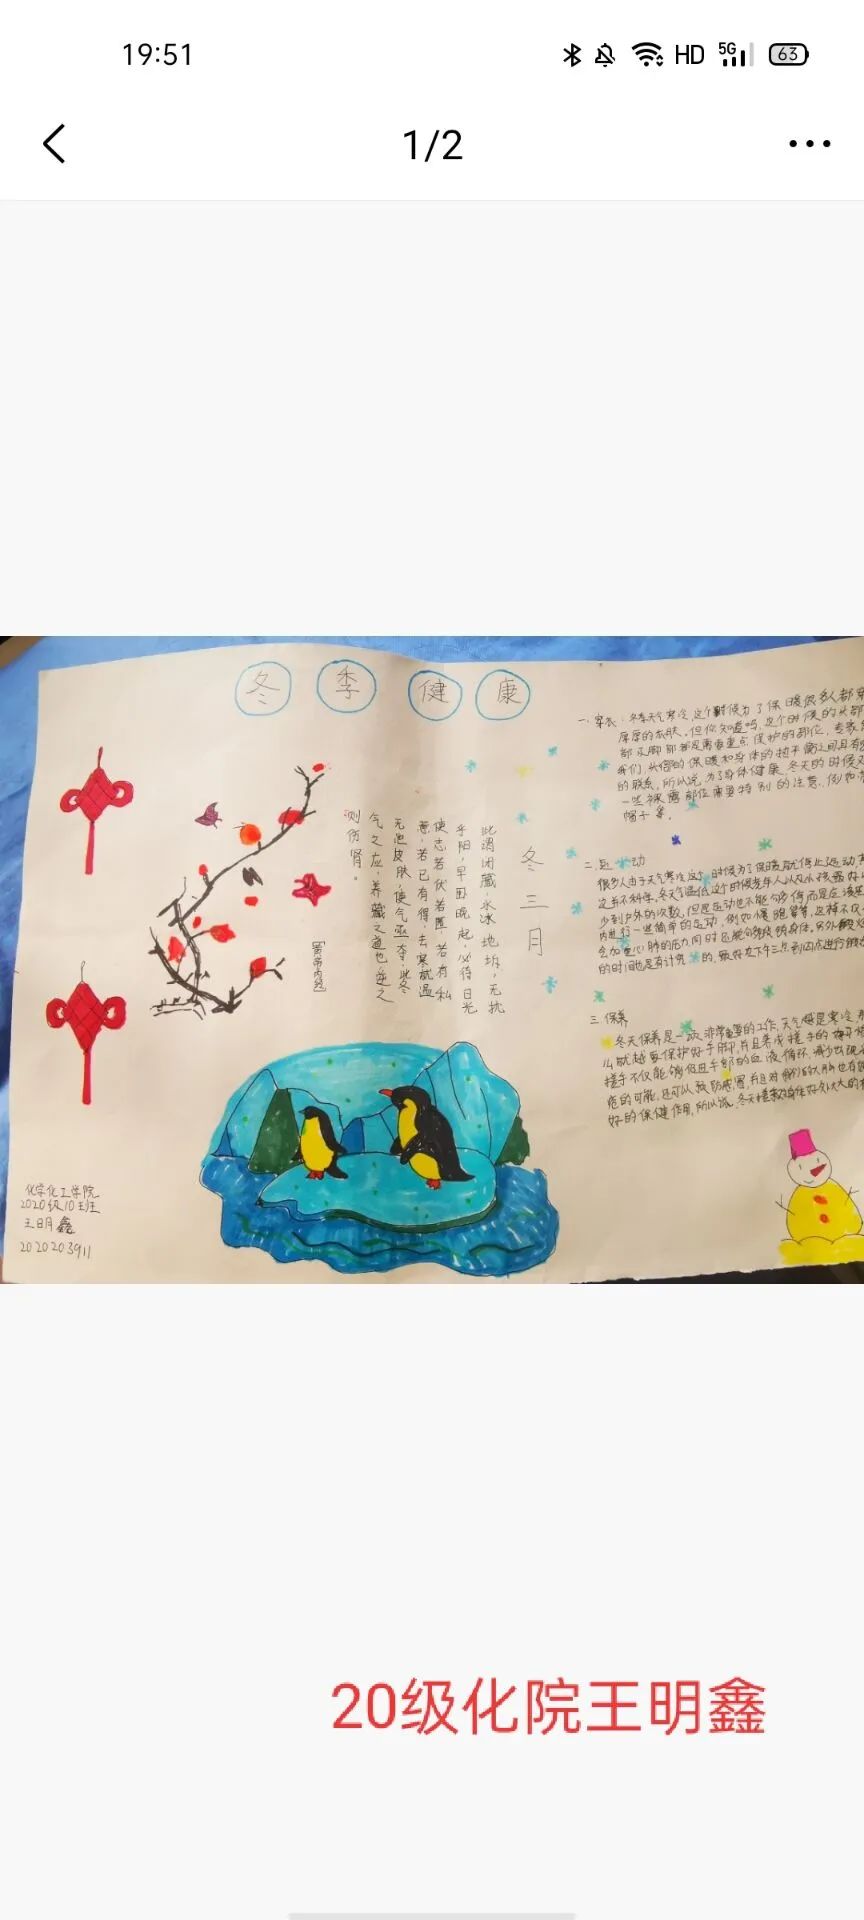 19:51
HD 5G 63
1/2
冬季健康
冬三月
此谓闭藏，水冰地坼，无扰
乎阳，早卧晚起，必待日光
使志若伏若匿，若有私
意，若已有得，去寒就温
无泄皮肤，使气亟夺，此冬
气之应，养藏之道也，逆之
则伤肾。
【黄帝内经】
一、穿衣：冬季天气寒冷，这个时候为了保暖很多人都
厚厚的衣服，但你知道吗，这个时候的头部
部及脚部都是需要重点保护的部位，专家
我们，头部的保暖和身体的热平衡之间具有
的联系，所以说，为了身体健康，冬天的时候
一些裸露部位需要特别的注意，例如
帽子等。
二、运动
很多人由于天气寒冷这个时候为了保暖就停止运动
这并不科学，冬天气温低这个时候老年人以及小孩最好
少到户外的次数，但是运动也不能够停而是应该
内进行一些简单的运动，例如慢跑等等，这样不仅
会加重心肺的压力同时还能够锻炼身体，另外
的时间也是有计究的，最好在下午三点到四点进行
三、保养
冬天保养是一项非常重要的工作，天气越是寒冷
么就越要保护好手脚，并且养成搓手的
搓手不仅能够促进手部的血液循环，减少出现
疮的可能，还可以预防感冒，并且对我们的大脑也有
好的保健作用，所以说，冬天搓手对身体好处大大的
化学化工学院
2020级10班
王明鑫
2020203911
20级化院王明鑫